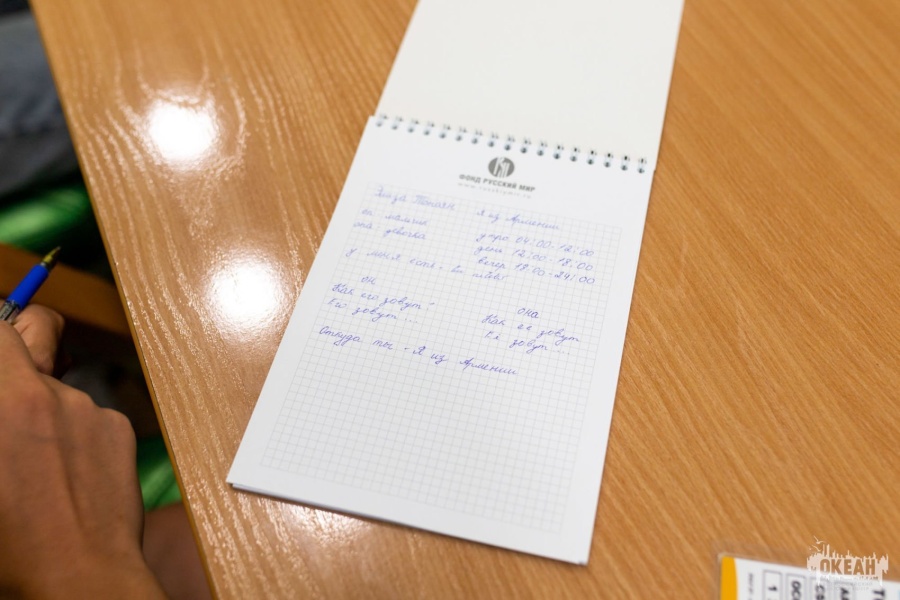 ФОНД РУССКИЙ МИР
www.russkiymir.ru
Топоян Я из Армении
он мальчик утро 04:00-12:00
она девочка день 12:00-18:00
вечер 18:00-24:00
У меня есть -
он она
Как его зовут? Как её зовут
Его зовут ... Её зовут
Откуда ты - Я из Армении
ОКЕАН